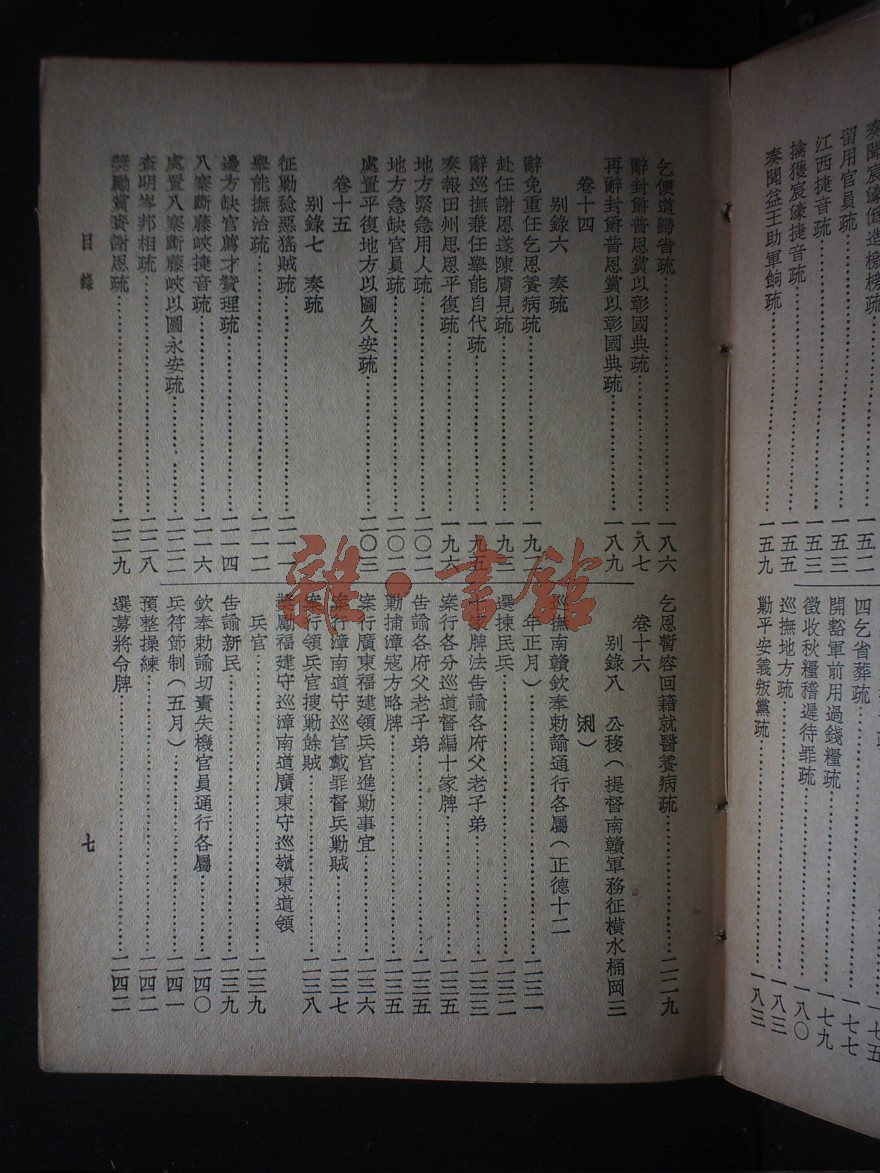 奏聞宸濠僞造檄榜疏
留用官員疏……一五二
江西捷音疏……一五三
擒獲宸濠捷音疏……一五五
奏聞益王助軍餉疏……一五九
四乞省葬疏……一七七
開豁軍前用過錢糧疏……一七九
徵收秋糧稽遲待罪疏……一八〇
巡撫地方疏……一八三
勦平安義叛黨疏……一八三
乞便道歸省疏……一八六
辭封爵普恩賞以彰國典疏……一八七
再辭封爵普恩賞以彰國典疏……一八九
卷十四
別錄六 奏疏
辭免重任乞恩養病疏……一九二
赴任謝恩遂陳膚見疏……一九三
辭巡撫兼任舉能自代疏……一九五
奏報田州思恩平復疏……一九六
地方緊急用人疏……二〇二
地方急缺官員疏……二〇二
處置平復地方以圖久安疏……二〇三
卷十五
別錄七 奏疏
征勦稔惡猺賊疏……二一一
舉能撫治疏……二一二
邊方缺官薦才贊理疏……二一四
八寨斷藤峽捷音疏……二一六
處置八寨斷藤峽以圖永安疏……二二二
查明岑邦相疏……二二八
獎勵賞賚謝恩疏……二二九
乞恩暫容回籍就醫養病疏……二二九
卷十六
別錄八 公移(提督南贛軍務征橫水桶岡三
浰)
巡撫南贛欽奉勅諭通行各屬(正德十二
年正月)……二三一
選揀民兵……二三二
家牌法告諭各府父老子弟……二三三
案行各分巡道督編十家牌……二三五
告諭各府父老子弟……二三五
勦捕漳寇方略牌……二三五
案行廣東福建領兵官進勦事宜……二三六
案行漳南道守巡官戴罪督兵勦賊……二三七
案行領兵官搜勦餘賊……二三八
獎勵福建守巡漳南道廣東守巡嶺東道領
兵官……二三九
告諭新民……二三九
欽奉勅諭切責失機官員通行各屬……二四〇
兵符節制(五月)……二四一
預整操練……二四二
選募將令牌……二四二
目錄
七
雜·書館